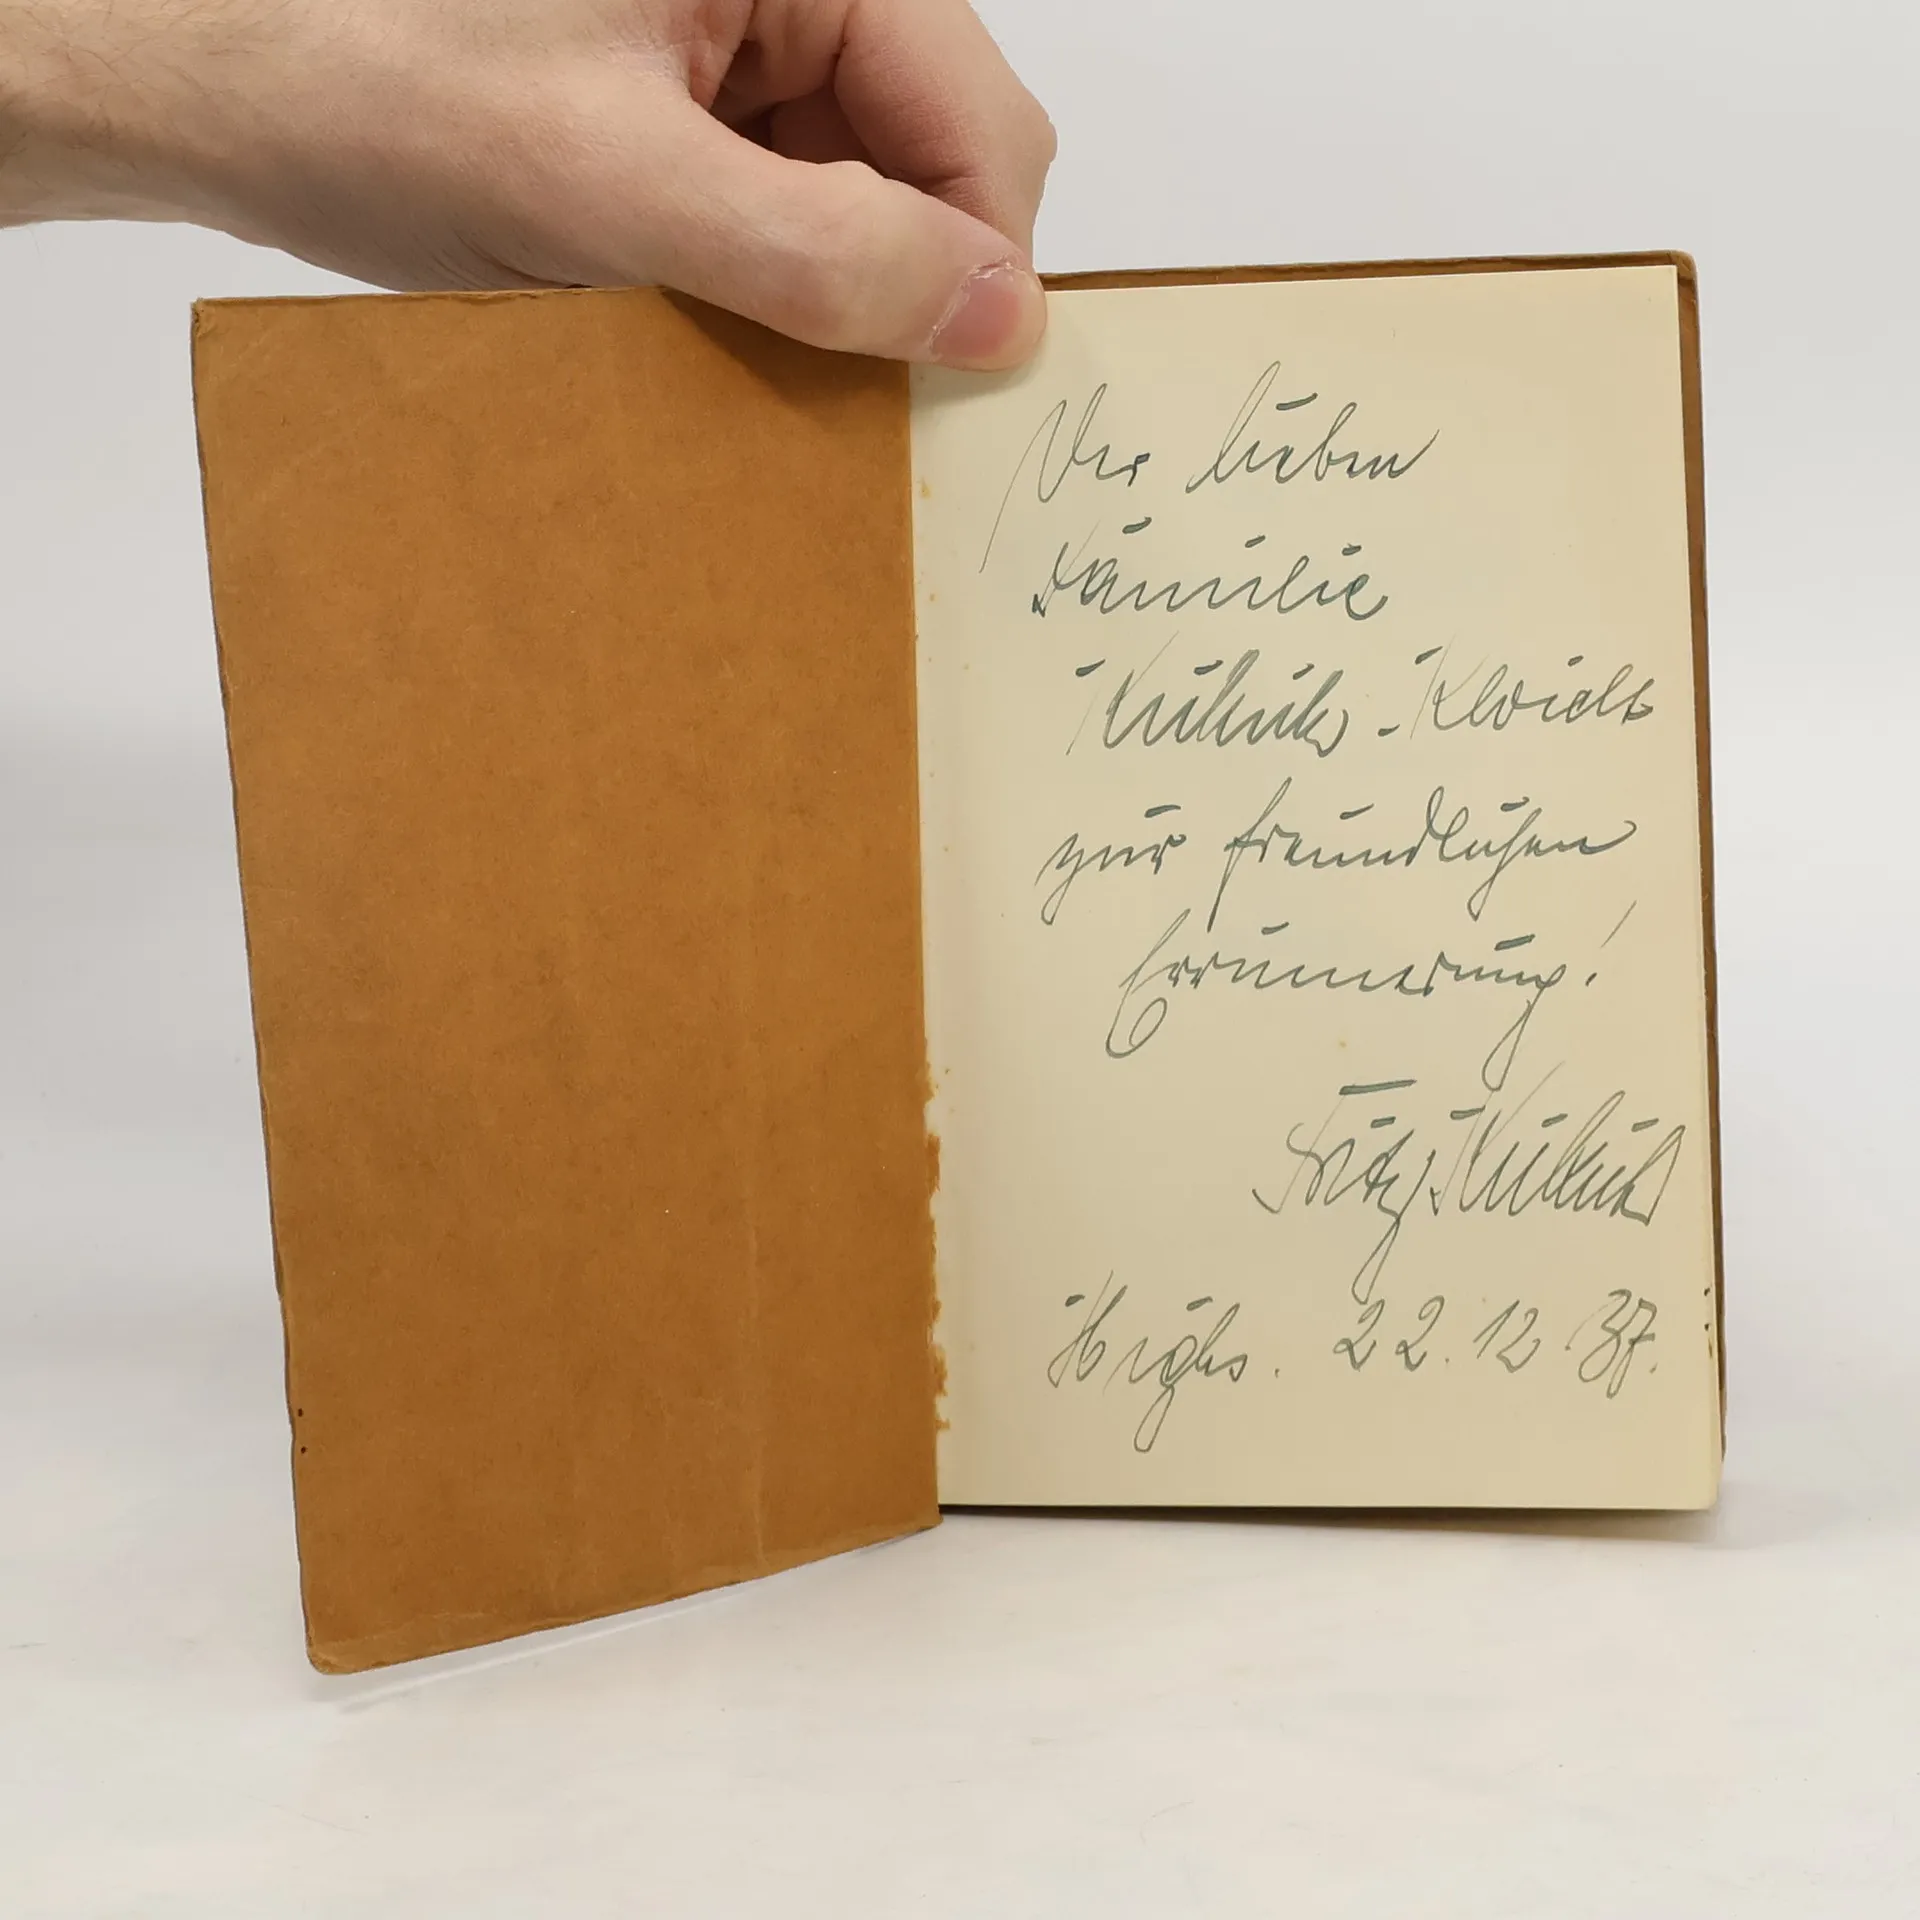 Der lieben
Familie
Kubuk - Kloidt
zur freundlichen
Erinnerung!
Fritz Kubuk
22.12.37.